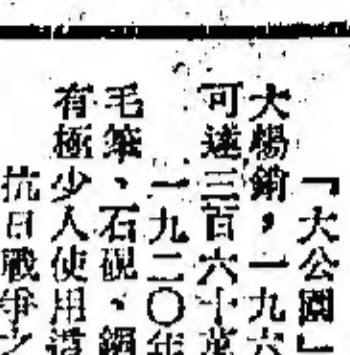 「大公園」
大暢銷，一九六
可達三百六十萬
一九二〇年
毛筆、石硯、鋼
有極少人使用這
抗日戰爭之